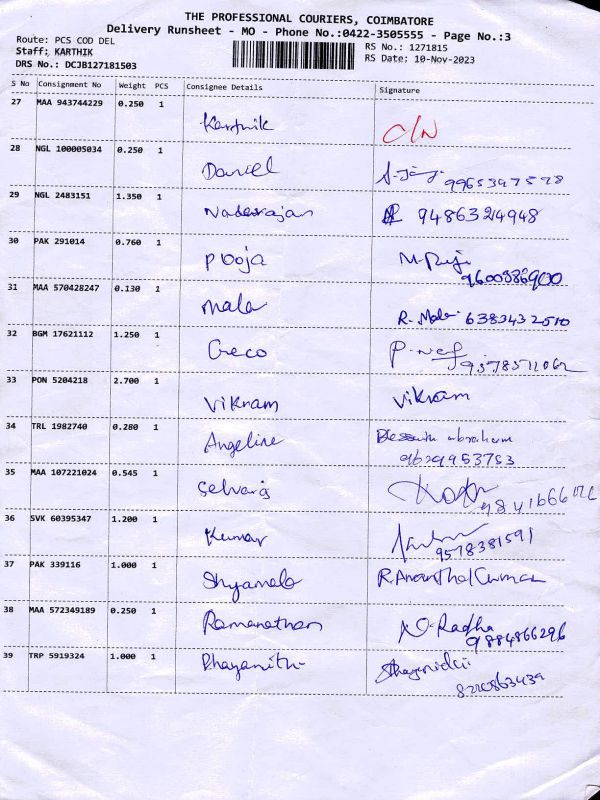 THE PROFESSIONAL COURIERS, COIMBATORE
Delivery Runsheet - MO - Phone No.:0422-3505555 - Page No.:3
Route: PCS COD DEL
Staff: KARTHIK
DRS No.: DCJB127181503
RS No.: 1271815
RS Date: 10-Nov-2023
S No Consignment No Weight PCS Consignee Details Signature
27 MAA 943744229 0.250 1 Karthik C/N
28 NGL 100005034 0.250 1 Daniel
29 NGL 2483151 1.350 1 Nadesrajan 9486324948
30 PAK 291014 0.760 1 Pooja
9600386900
31 MAA 570428247 0.130 1 Mala R. Mala 6383432510
32 BGM 17621112 1.250 1 Greco
33 PON 5204218 2.700 1 Vikram Vikram
34 TRL 1982740 0.280 1 Angeline abraham
9629953753
35 MAA 107221024 0.545 1 Selvaraj
36 SVK 60395347 1.200 1 Kumar
9578381591
37 PAK 339116 1.000 1 Shyamala
38 MAA 572349189 0.250 1 Ramanathan Radha
9884866296
39 TRP 5919324 1.000 1